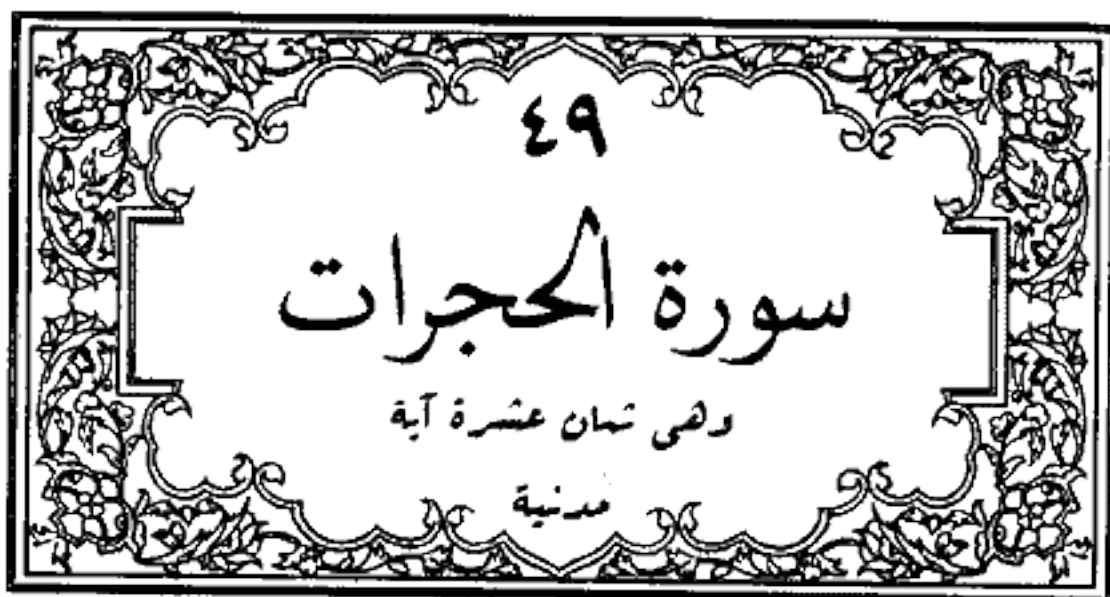 ٤٩
سورة الحجرات
وهى ثمان عشرة آية
مدنية